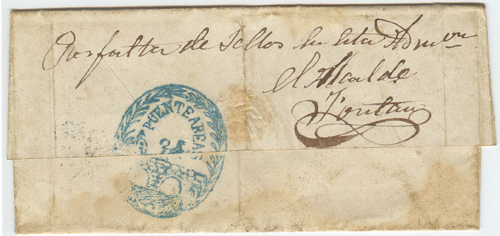 Por falta de Sellos en esta Admon
el Alcalde
Fontan
PUENTEAREAS